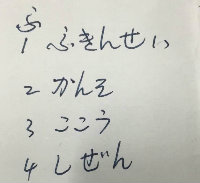 ぶ
1 ふきんせい
2 かんそ
3 ここう
4 しぜん